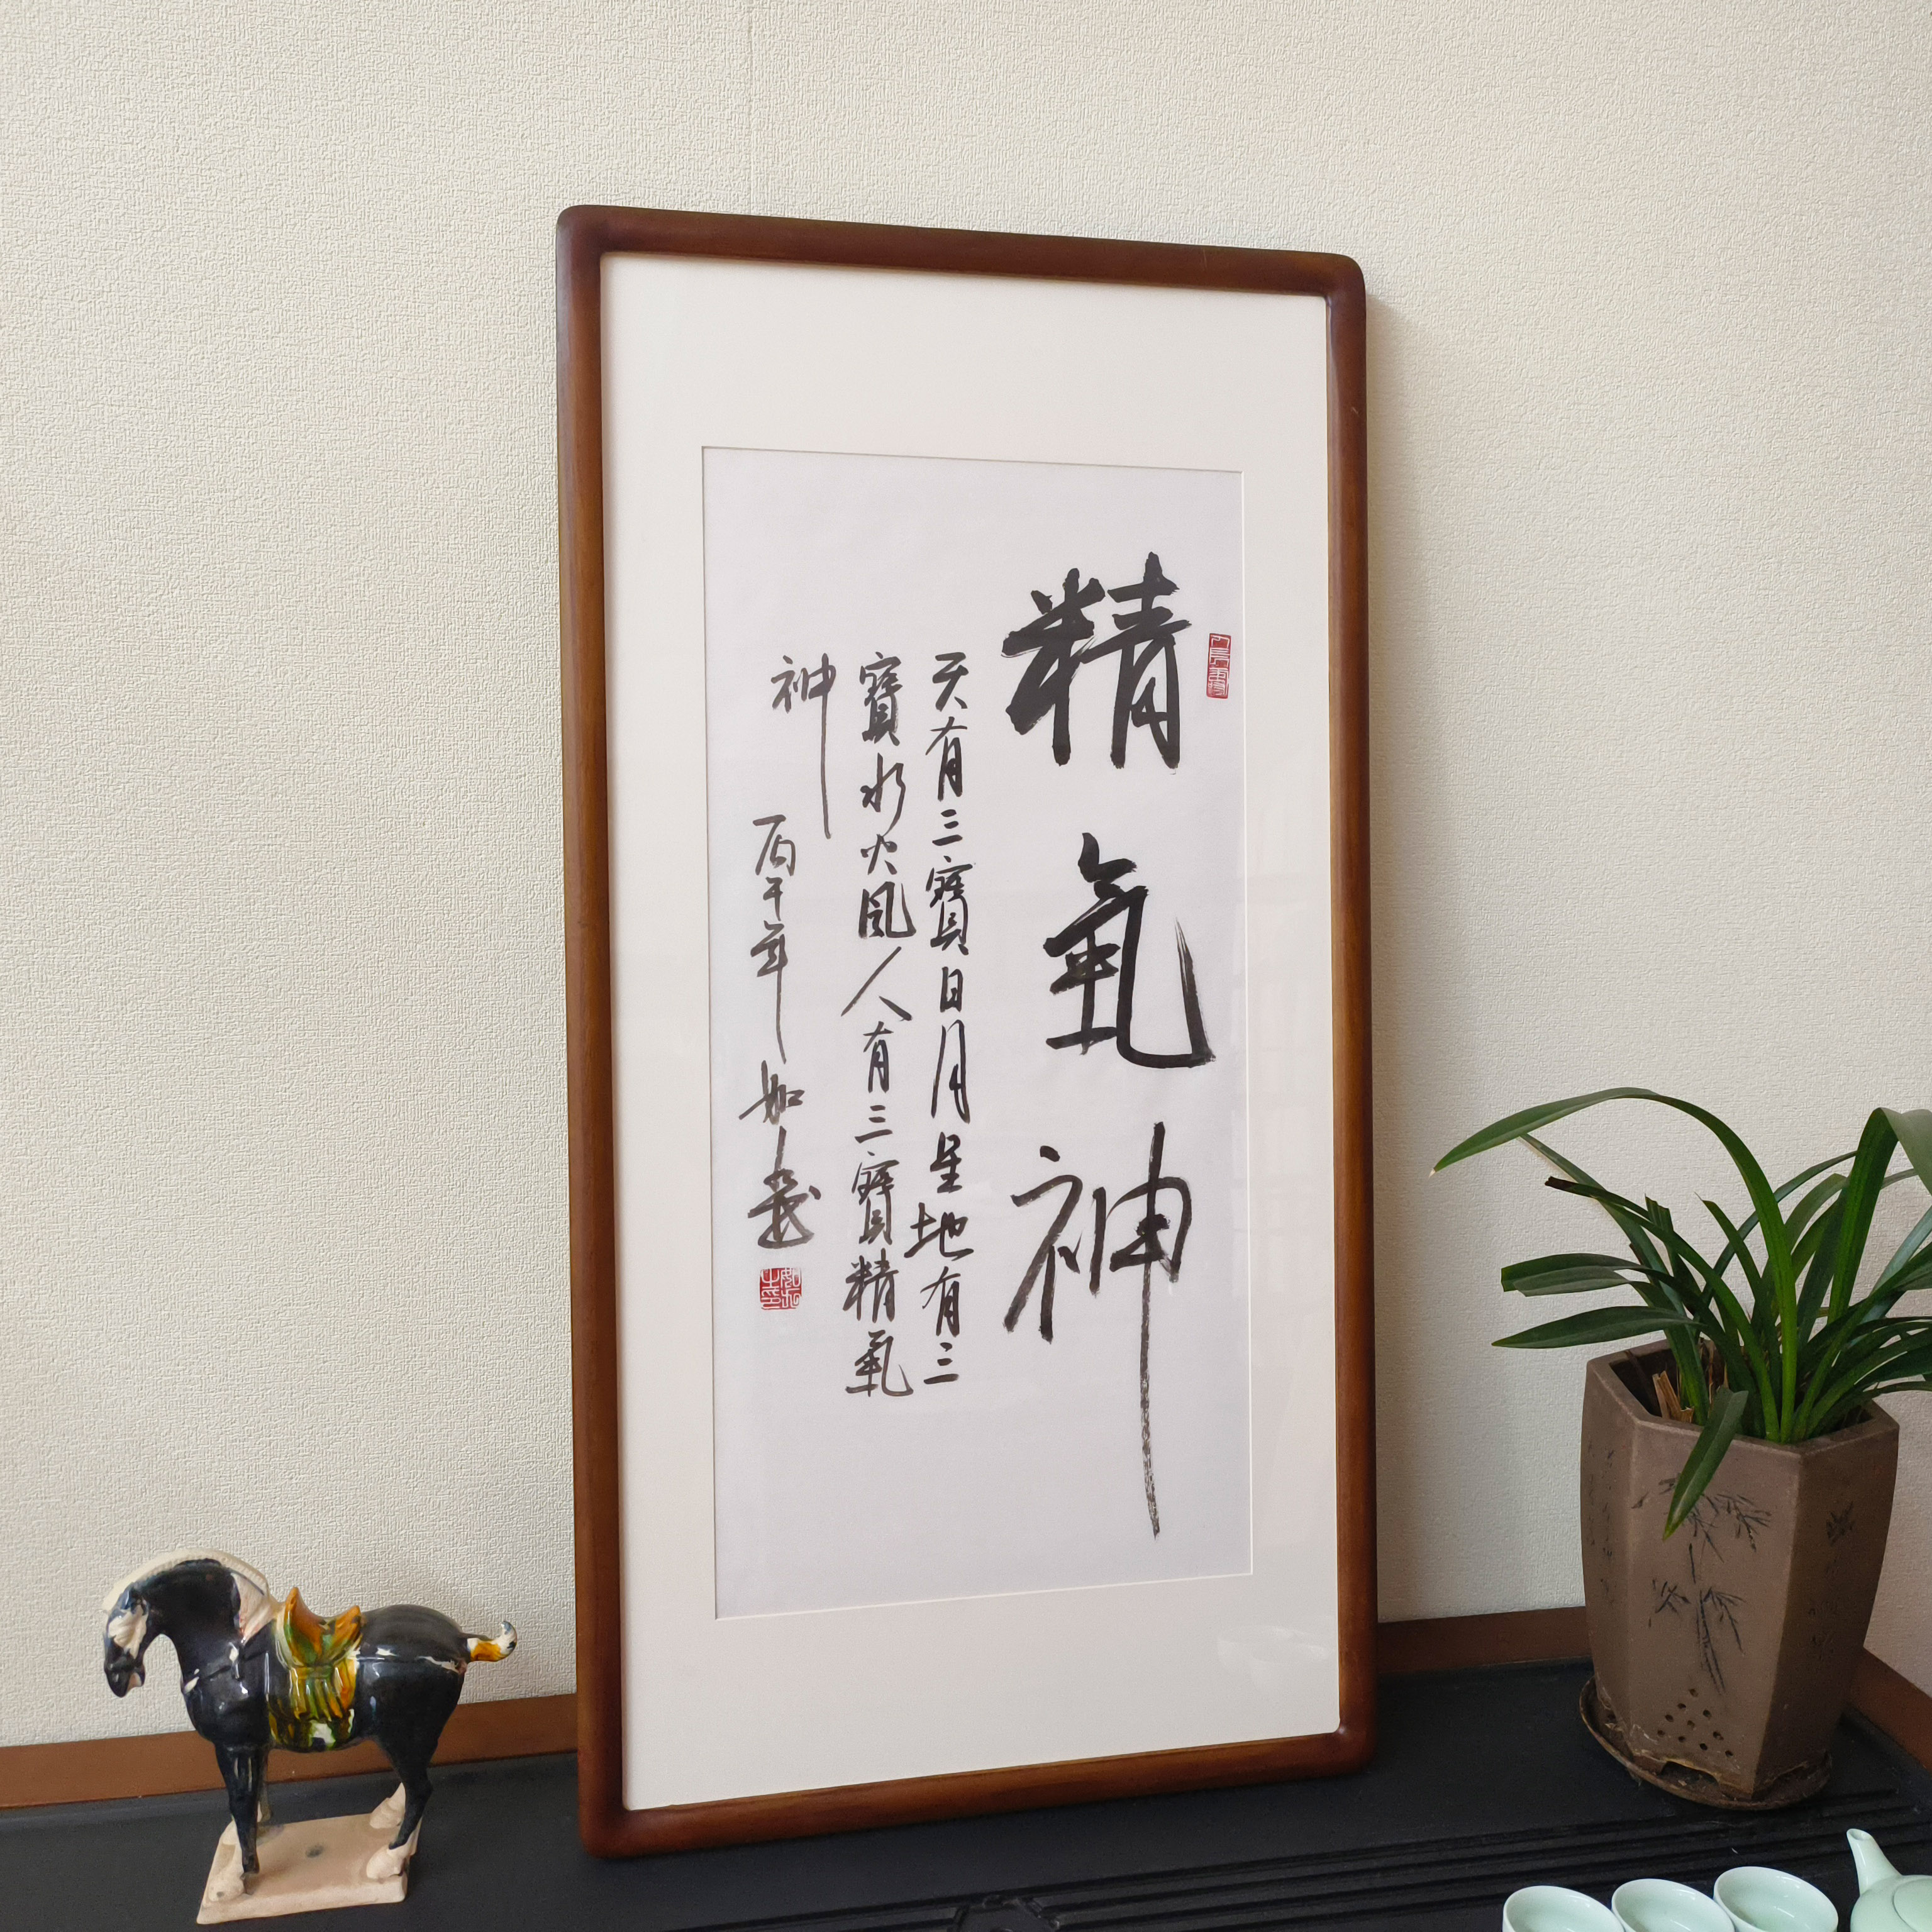 精氣神
天有三寶日月星地有三
寶水火風人有三寶精氣
神
丙午年 如